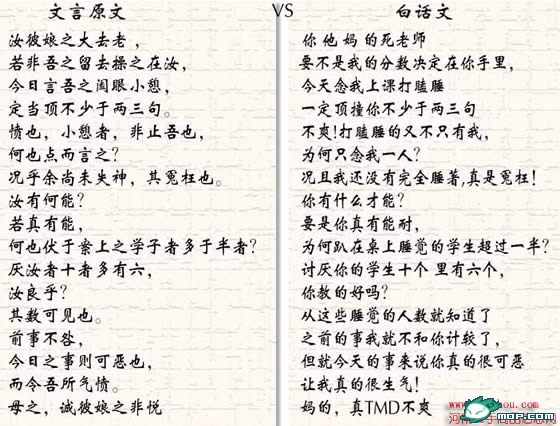 文言原文 VS 白话文
汝彼娘之大去老，
若非吾之留去操之在汝，
今日言吾之阖眼小憩，
定当顶不少于两三句。
愤也，小憩者，非止吾也，
何也点而言之？
况乎余尚未失神，其冤枉也。
汝有何能？
若真有能，
何也伏于案上之学子者多于半者？
厌汝者十者多有六，
汝良乎？
其数可见也。
前事不咎，
今日之事则可恶也，
而令吾所气愤。
母之，诚彼娘之非悦
你他妈的死老师
要不是我的分数决定在你手里，
今天念我上课打瞌睡
一定顶撞你不少于两三句
不爽！打瞌睡的又不只有我，
为何只念我一人？
况且我还没有完全睡著，真是冤枉！
你有什么才能？
要是你真有能耐，
为何趴在桌上睡觉的学生超过一半？
讨厌你的学生十个 里有六个，
你教的好吗？
从这些睡觉的人数就知道了
之前的事我就不和你计较了，
但就今天的事来说你真的很可恶
让我真的很生气！
妈的，真TMD不爽
mop.com